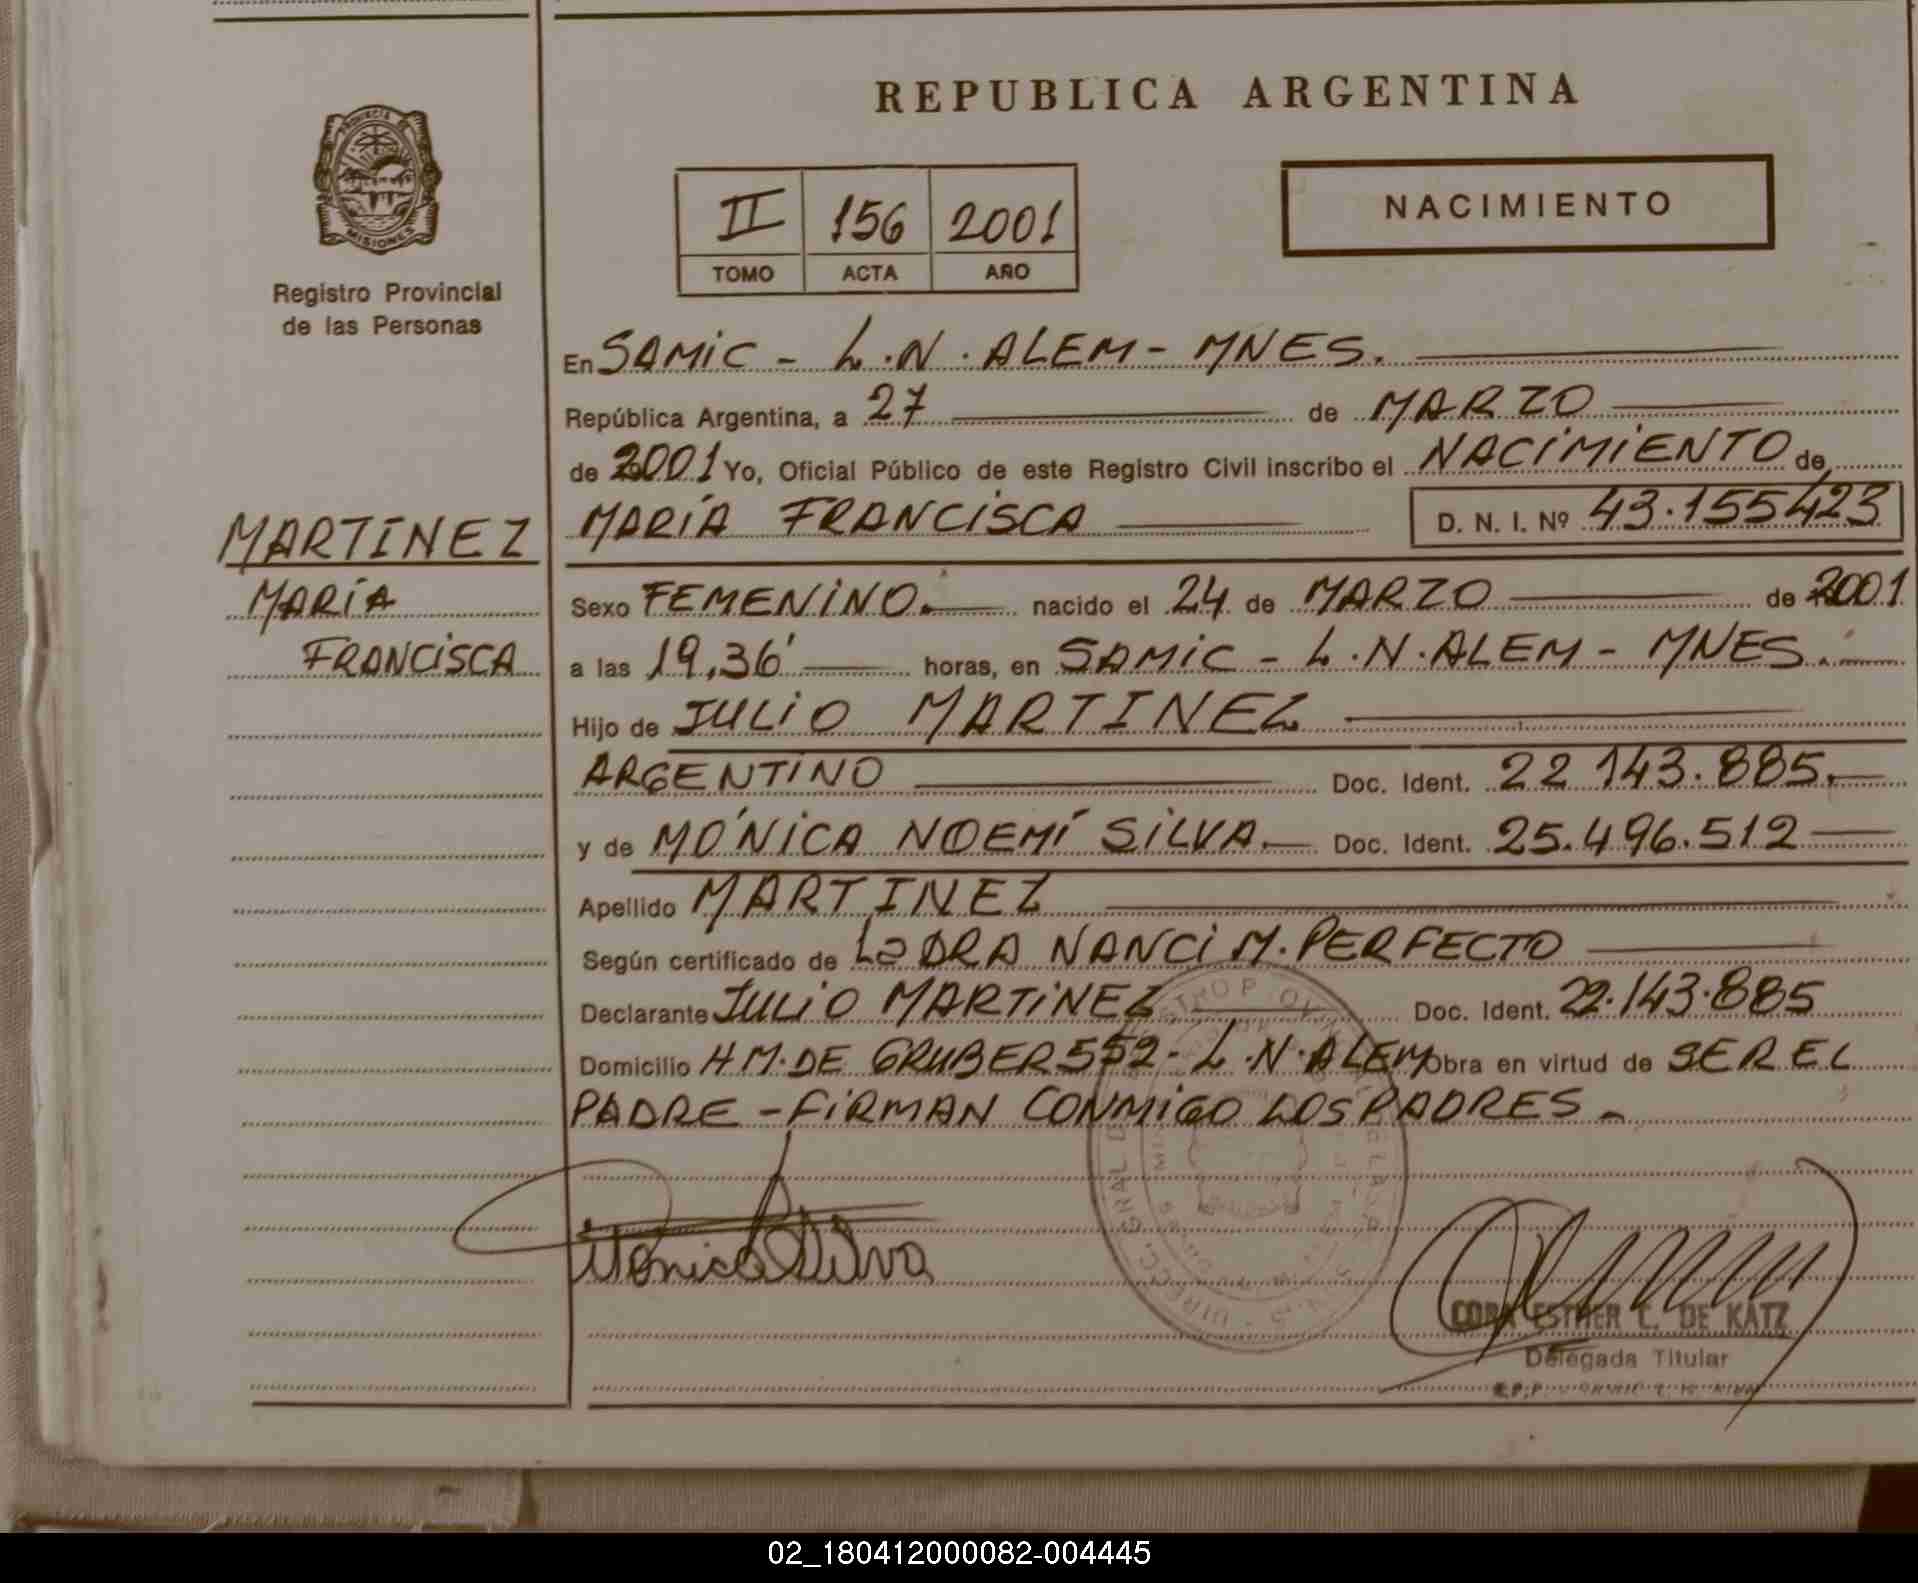 REPUBLICA ARGENTINA
PROVINCIA DE
MISIONES
Registro Provincial
de las Personas
II 156 2001
TOMO ACTA AÑO
NACIMIENTO
En SAMIC - L.N. ALEM - MNES.
República Argentina, a 27 de MARZO
de 2001 Yo, Oficial Público de este Registro Civil inscribo el NACIMIENTO de
MARÍA FRANCISCA D. N. I. Nº 43.155423
MARTINEZ
MARÍA
FRANCISCA
Sexo FEMENINO. nacido el 24 de MARZO de 2001
a las 19,36' horas, en SAMIC - L.N. ALEM - MNES.
Hijo de JULIO MARTINEZ
ARGENTINO Doc. Ident. 22.143.885.
y de MÓNICA NOEMÍ SILVA. Doc. Ident. 25.496.512
Apellido MARTINEZ
Según certificado de La DRA NANCI M. PERFECTO
Declarante JULIO MARTINEZ Doc. Ident. 22.143.885
Domicilio H M. DE GRUBER 552 - L.N. ALEM Obra en virtud de SER EL
PADRE - FIRMAN CONMIGO LOS PADRES -
Monica Silva
CORA ESTHER C. DE KATZ
Delegada Titular
02_180412000082-004445